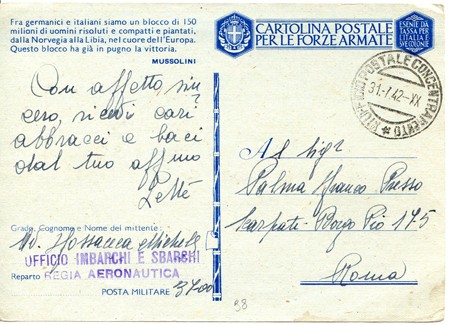 Fra germanici e italiani siamo un blocco di 150
milioni di uomini risoluti e compatti e piantati,
dalla Norvegia alla Libia, nel cuore dell'Europa.
Questo blocco ha già in pugno la vittoria.
MUSSOLINI
Con affetto, sin
cero, ricevi cari
abbracci e baci
dal tuo affmo
Grado, Cognome e Nome del mittente:
Michele
UFFICIO IMBARCHI E SBARCHI
Reparto REGIA AERONAUTICA
POSTA MILITARE 3700
CARTOLINA POSTALE
PER LE FORZE ARMATE
ESENTE DA
TASSA PER
L'ITALIA E
SVE COLONIE
UFFICIO POSTALE CONCENTRAMENTO
31.7.42-XX
Al Sigr
Palma Franco Presso
Scarpati - Borgo Pio 175
Roma
98